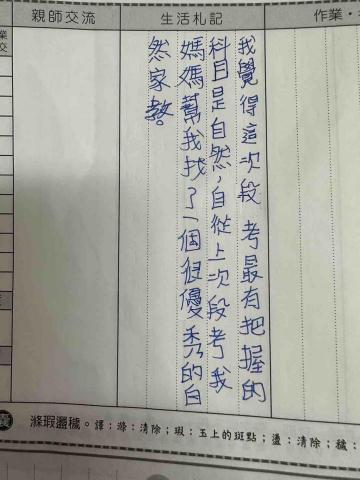 親師交流
生活札記
作業・
業
交
我覺得這次段考最有把握的
科目是自然,自從上次段考我
媽媽幫我找了一個很優秀的自
然家教。
滌瑕盪穢。譯:滌:清除;瑕:玉上的斑點;盪:清除;穢: